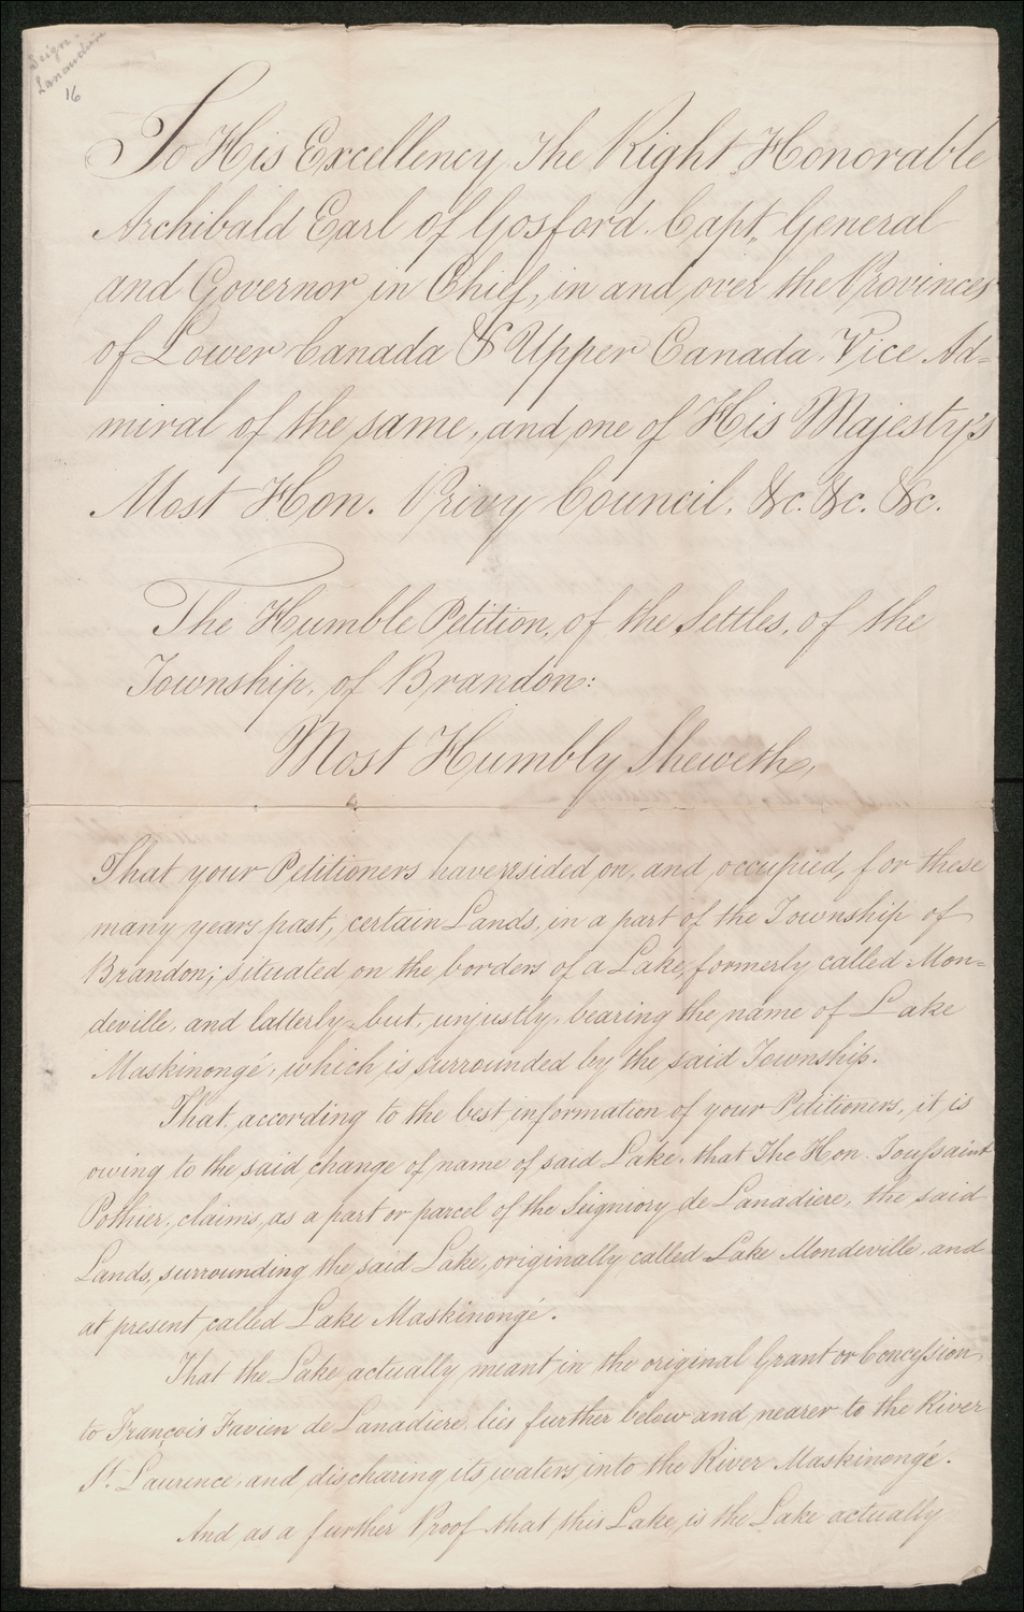 Seign.
Lanaudière
16
To His Excellency, The Right Honorable
Archibald Earl of Gosford. Capt. General
and Governor in Chief, in and over the Provinces
of Lower Canada & Upper Canada. Vice Ad=
miral of the same, and one of His Majesty's
Most Hon. Privy Council, &c. &c. &c.
The Humble Petition, of the Settles, of the
Township, of Brandon:
Most Humbly Sheweth,
That your Petitioners have resided on, and occupied, for these
many years past, certain Lands, in a part of the Township of
Brandon; situated on the borders of a Lake, formerly called Mon=
deville, and latterly, but, unjustly, bearing the name of Lake
Maskinongé, which is surrounded by the said Township.
That, according to the best information of your Petitioners, it is
owing to the said change of name of said Lake, that The Hon. Toussaint
Pothier, claims, as a part or parcel of the Seigniory de Lanadiere, the said
Lands, surrounding the said Lake, originally called Lake Mondeville, and
at present called Lake Maskinongé.
That the Lake, actually meant in the original Grant or Concession
to François Favien de Lanadiere, lies further below and nearer to the River
St. Laurence, and discharing its waters, into the River Maskinongé.
And as a further Proof that this Lake, is the Lake actually